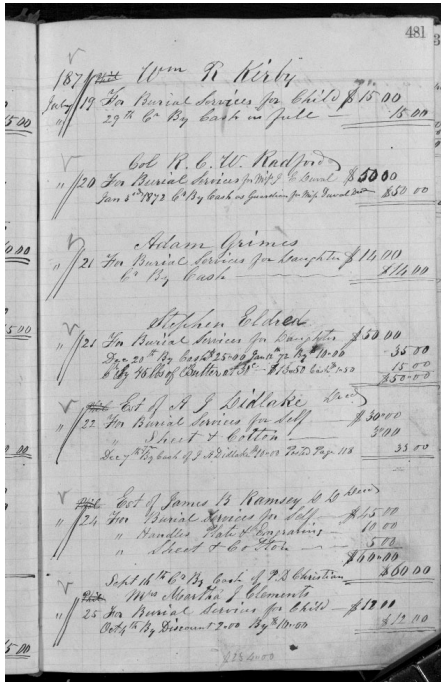 481
187 Wm R Kirby
July 19 For Burial Services for Child $15.00
29th Cr By Cash in full 15.00
Col R. C. W. Radford
" 20 For Burial Services for Miss J. E. Duval $50.00
Jan 5th 1872 Cr By Cash as Guardian for Miss Duval $50.00
Adam Grimes
" 21 For Burial Services for Daughter $14.00
Cr By Cash $14.00
Stephen Eldred
" 21 For Burial Services for Daughter $50.00
Dec 20th By Cash 25.00 Jan 72 By 10.00 35.00
Cr By 45 lbs of Butter at 30c $13.50 Cash 1.50 15.00
$50.00
Est of A J Didlake Decd
" 22 For Burial Services for Self $30.00
" Sheet & Cotton 3.00
Dec 7th By Cash of J. A. Didlake Page 118 33.00
Est of James B Ramsey Decd
" 24 For Burial Services for Self $45.00
" Handles, Plate & Engraving 10.00
" Sheet & Cotton 5.00
$60.00
Sept 16th Cr By Cash of P. D Christian $60.00
Mrs Martha J. Clements
" 25 For Burial Services for Child $12.00
Oct 4th By Discount 2.00 By 10.00 $12.00